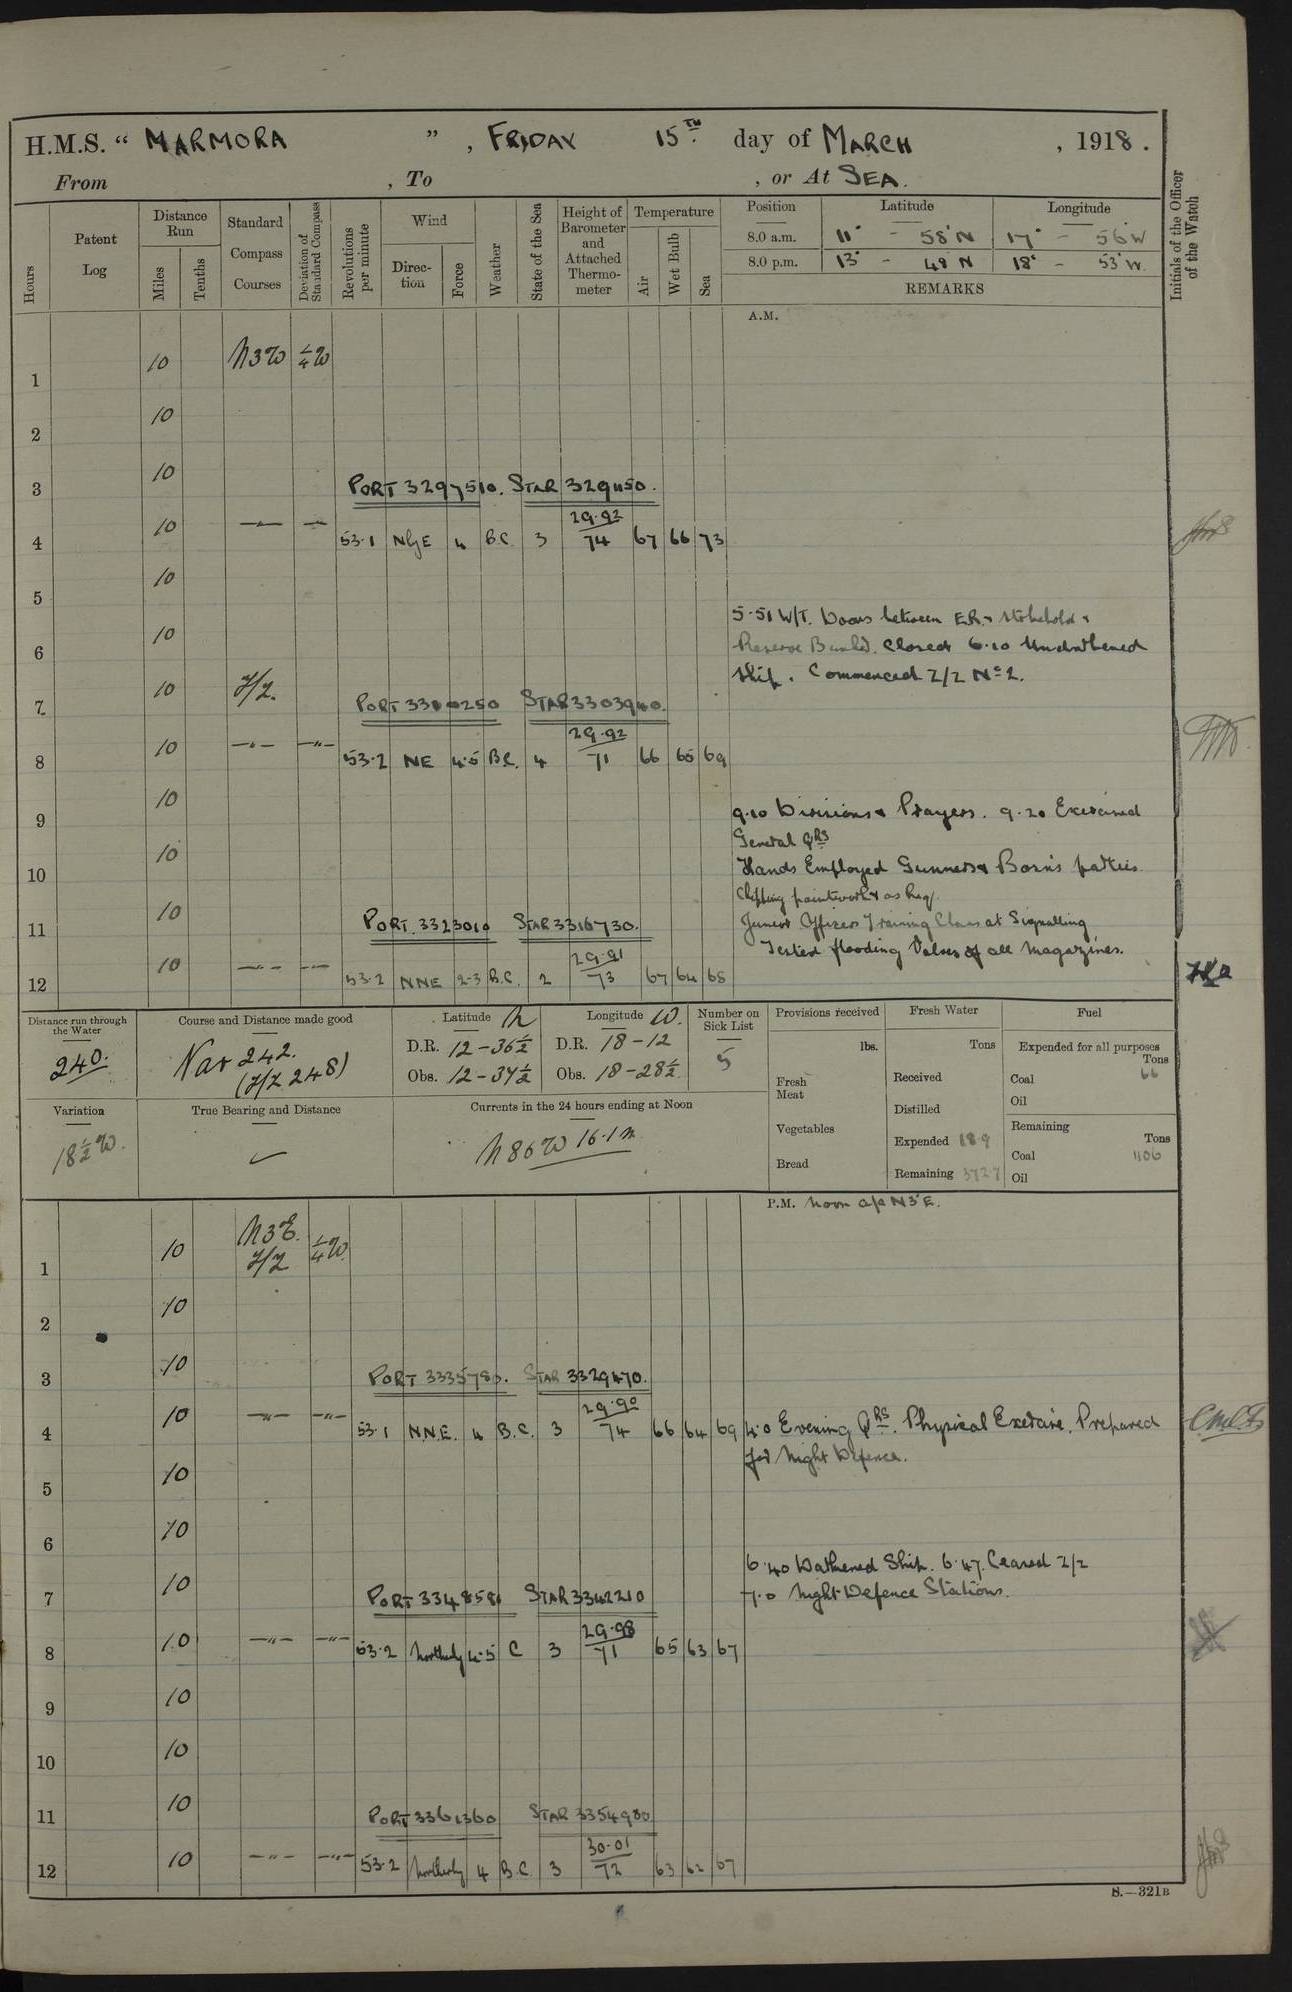 H.M.S. “ MARMORA ” , FRIDAY 15TH day of MARCH , 1918 .
From , To , or At SEA.
Hours
Patent Log
Distance Run
Miles
Tenths
Standard Compass Courses
Deviation of Standard Compass
Revolutions per minute
Wind
Direction
Force
Weather
State of the Sea
Height of Barometer and Attached Thermometer
Temperature
Air
Wet Bulb
Sea
Position Latitude Longitude
8.0 a.m. 11° - 58' N 17° - 56' W
8.0 p.m. 13° - 48 N 18° - 53' W.
REMARKS
Initials of the Officer of the Watch
A.M.
1 10 N3W ¼W
2 10
3 10
PORT 3297510. STAR 3291150.
4 10 53.1 NbyE 4 B.C. 3 29.92/74 67 66 73
5 10
5.51 W/T. Doors between E.R. & Stokehold &
6 10
Reserve Bunkd. Closed 6.10 Undarkened
Ship. Commenced Z/Z No 2.
7 10 Z/Z.
PORT 3310250 STAR 3303940.
8 10 -"- -"- 53.2 NE 4.5 B.C. 4 29.92/71 66 65 69
9 10
9.10 Divisions & Prayers. 9.20 Exercised
General QRS
10 10
Hands Employed Gunners & Bosn's parties
Chipping paintwork & as req.
11 10
Junior Officers Training Class at Signalling
PORT 3323010 STAR 3316730.
Tested flooding Valves of all magazines.
12 10 -"- -"- 53.2 NNE 2-3 B.C. 2 29.91/73 67 64 68
Distance run through the Water
240.
Course and Distance made good
Nar 242.
(Z/Z 248)
Latitude N
D.R. 12-36½
Obs. 12-37½
Longitude W.
D.R. 18-12
Obs. 18-28½
Number on Sick List
5
Provisions received
lbs.
Fresh Meat
Vegetables
Bread
Fresh Water
Tons
Received
Distilled
Expended 18.9
Remaining 372.7
Fuel
Expended for all purposes
Tons
Coal 66
Oil
Remaining
Tons
Coal 1106
Oil
Variation
18½W.
True Bearing and Distance
Currents in the 24 hours ending at Noon
N86W 16.1m
P.M. Noon a/c N3°E.
1 10 N3E. Z/Z ¼W.
2 10
3 10
PORT 3335780. STAR 3329470.
4 10 -"- -"- 53.1 N.N.E. 4 B.C. 3 29.90/74 66 64 69 4.0 Evening QRS. Physical Exercise. Prepared
for Night Defence.
5 10
6 10
6.40 Darkened Ship. 6.47. Ceased Z/Z
7 10
7.0 Night Defence Stations.
PORT 3348580 STAR 3342210
8 10 -"- -"- 53.2 Northerly 4.5 C 3 29.98/71 65 63 67
9 10
10 10
11 10
PORT 3361360 STAR 3354980
12 10 -"- -"- 53.2 Northerly 4 B.C 3 30.01/72 63 62 67
S.—321B